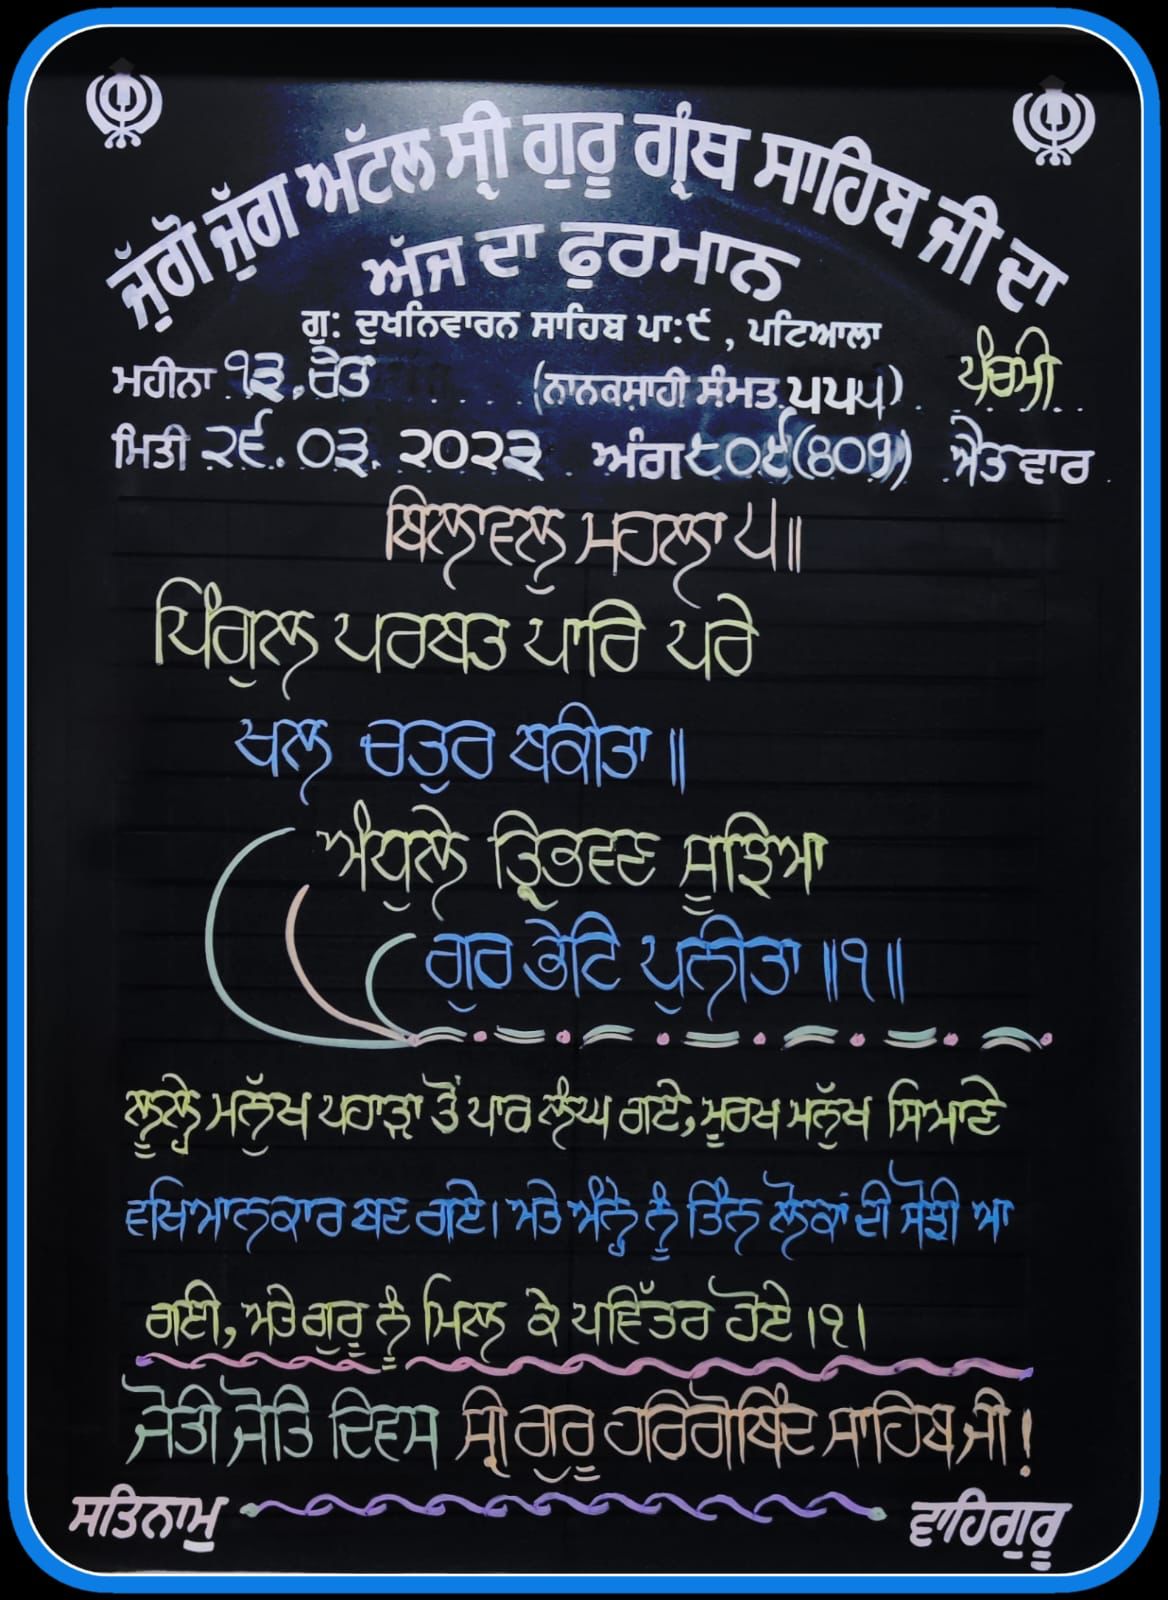 ਜੁੱਗੋ ਜੁੱਗ ਅਟੱਲ ਸ੍ਰੀ ਗੁਰੂ ਗ੍ਰੰਥ ਸਾਹਿਬ ਜੀ ਦਾ
ਅੱਜ ਦਾ ਫੁਰਮਾਨ
ਗੁ: ਦੁਖਨਿਵਾਰਨ ਸਾਹਿਬ ਪਾ:੯ , ਪਟਿਆਲਾ
ਮਹੀਨਾ ੧੩, ਚੇਤ (ਨਾਨਕਸ਼ਾਹੀ ਸੰਮਤ ੫੫੫) ਪੰਚਮੀ
ਮਿਤੀ ੨੬. ੦੩. ੨੦੨੩ ਅੰਗ ੮੦੯ (809) ਐਤਵਾਰ
ਬਿਲਾਵਲੁ ਮਹਲਾ ੫॥
ਪਿੰਗੁਲ ਪਰਬਤ ਪਾਰਿ ਪਰੇ
ਖਲ ਚਤੁਰ ਬਕੀਤਾ ॥
ਅੰਧੁਲੇ ਤ੍ਰਿਭਵਣ ਸੂਝਿਆ
ਗੁਰ ਭੇਟਿ ਪੁਨੀਤਾ ॥੧॥
ਲੂਲ੍ਹੇ ਮਨੁੱਖ ਪਹਾੜਾਂ ਤੋਂ ਪਾਰ ਲੰਘ ਗਏ, ਮੂਰਖ ਮਨੁੱਖ ਸਿਆਣੇ
ਵਖਿਆਨਕਾਰ ਬਣ ਗਏ। ਅਤੇ ਅੰਨ੍ਹੇ ਨੂੰ ਤਿੰਨ ਲੋਕਾਂ ਦੀ ਸੋਝੀ ਆ
ਗਈ, ਅਤੇ ਗੁਰੂ ਨੂੰ ਮਿਲ ਕੇ ਪਵਿੱਤਰ ਹੋਏ ।੧।
ਜੋਤੀ ਜੋਤਿ ਦਿਵਸ ਸ੍ਰੀ ਗੁਰੂ ਹਰਿਗੋਬਿੰਦ ਸਾਹਿਬ ਜੀ !
ਸਤਿਨਾਮੁ ਵਾਹਿਗੁਰੂ